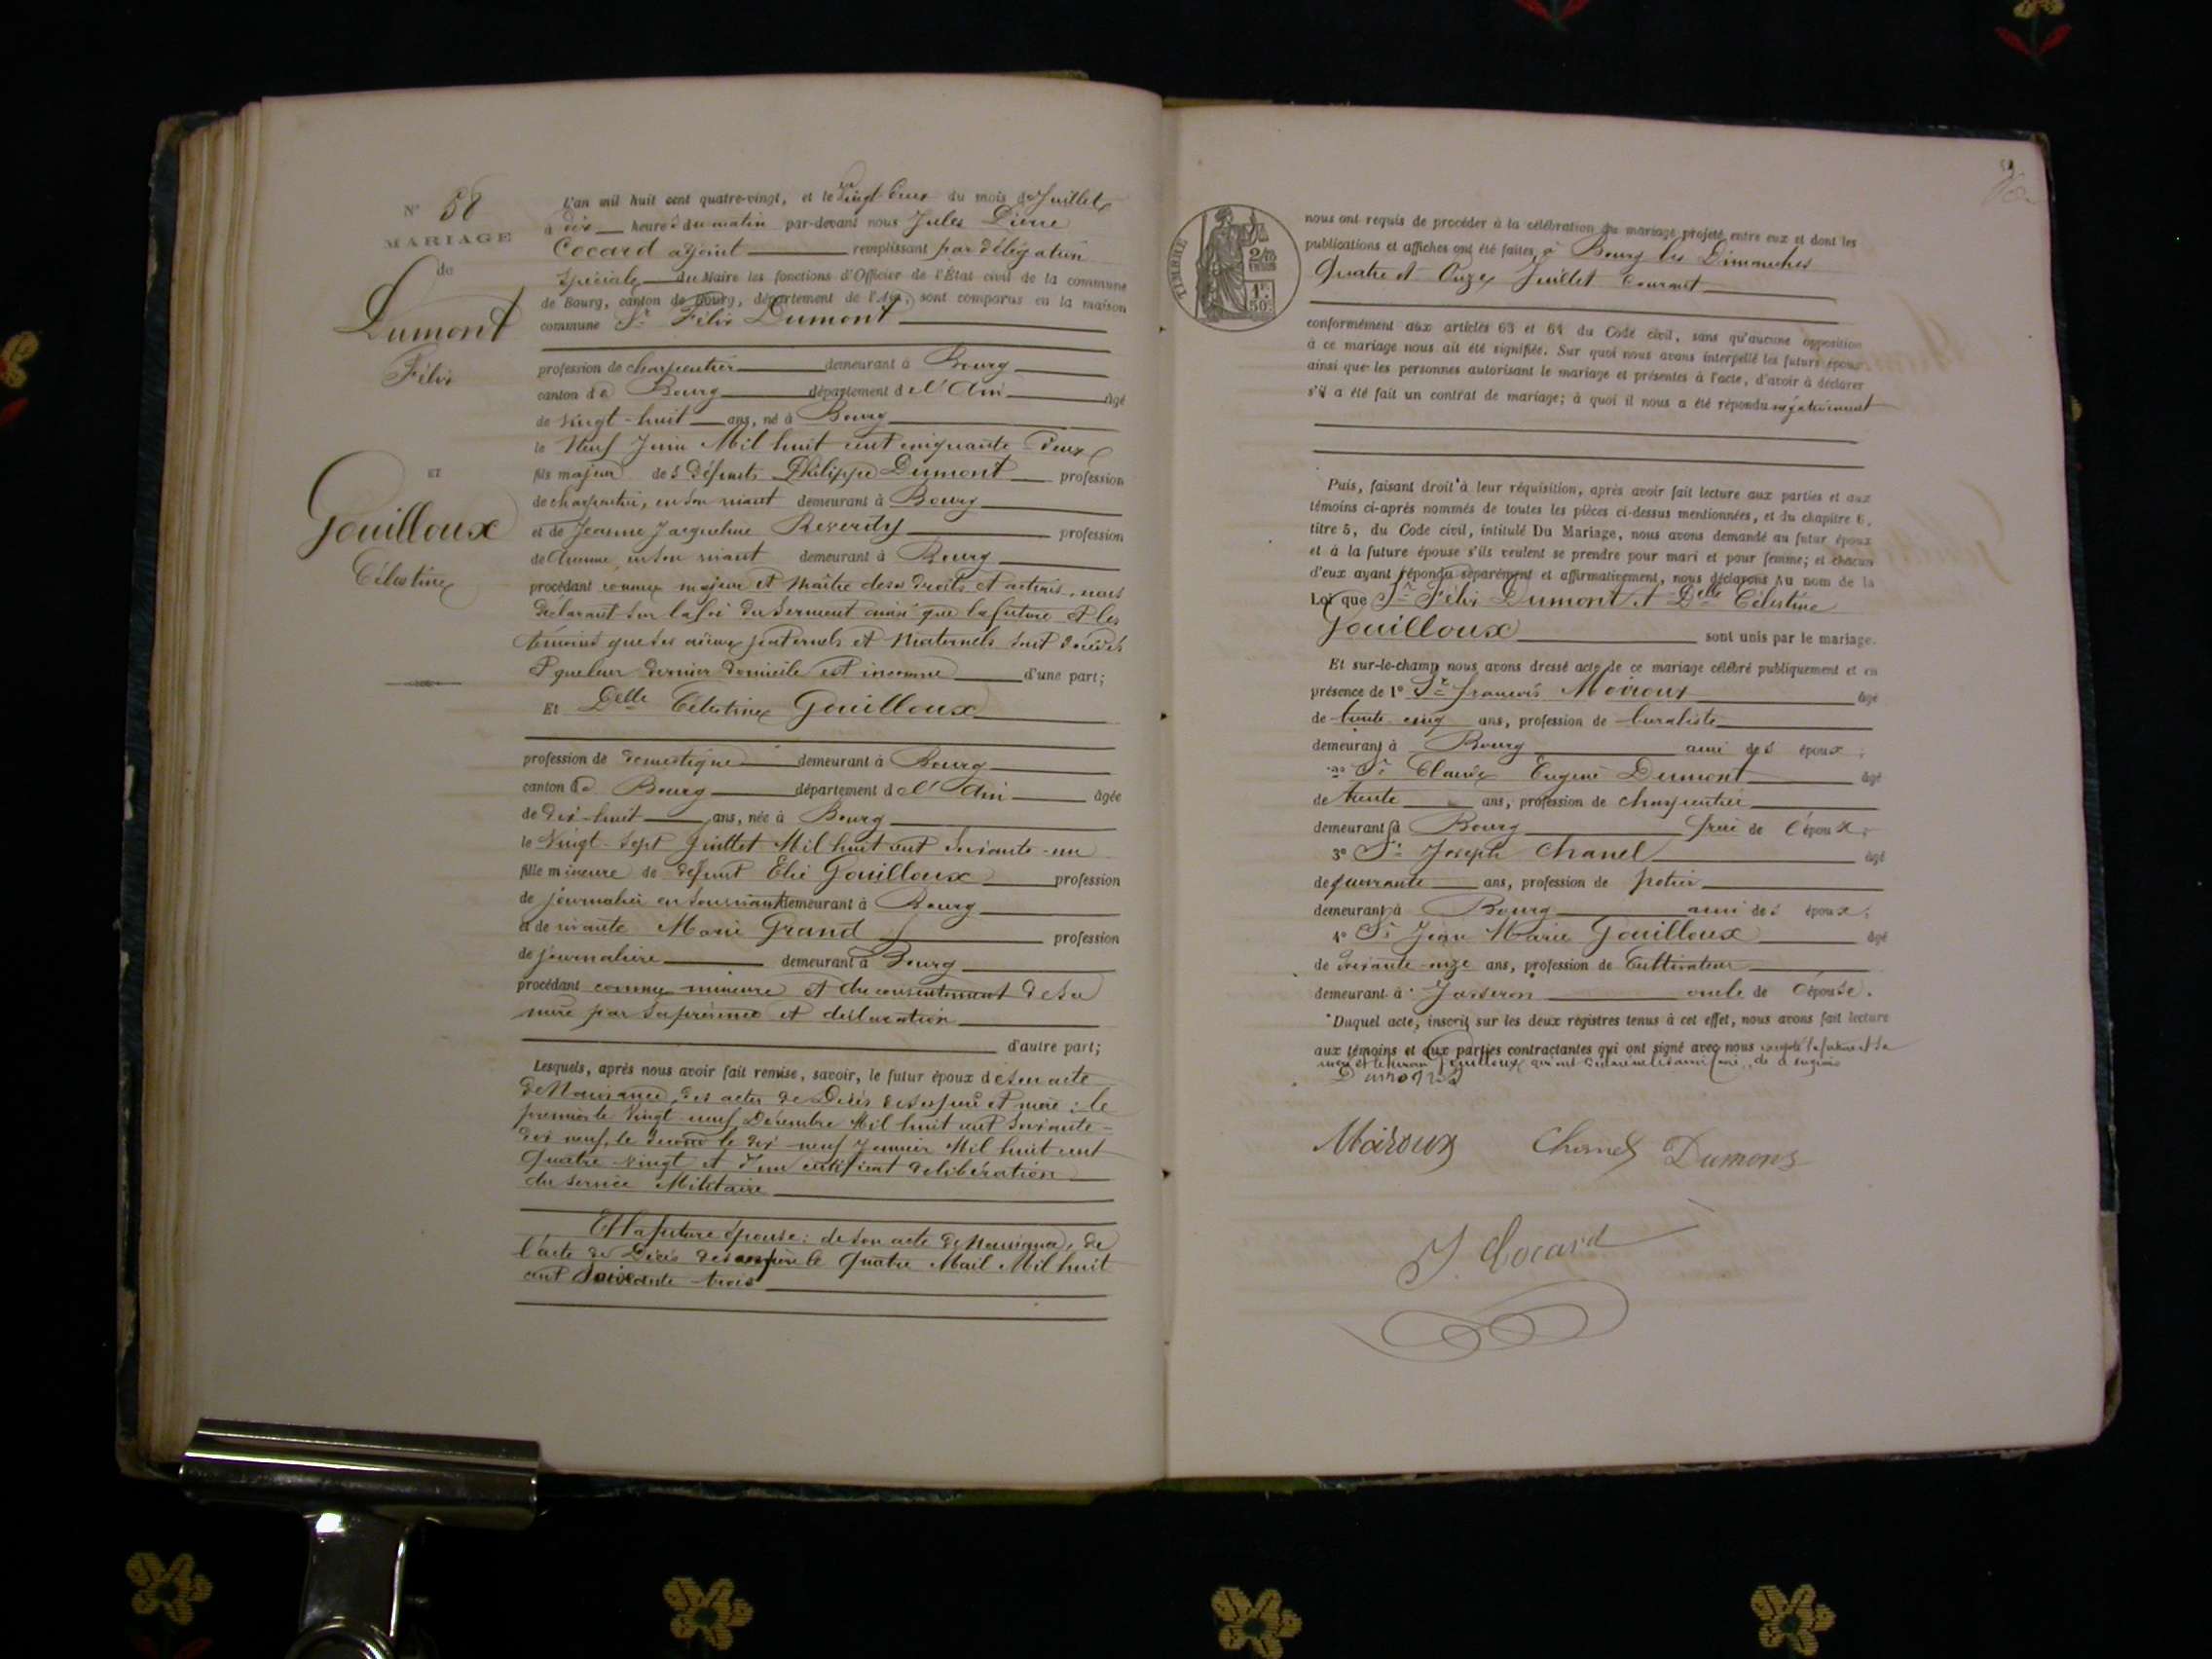 N° 58
MARIAGE
de
Dumont
Félix
ET
Gouilloux
Célestine
L'an mil huit cent quatre-vingt, et le vingt deux du mois de Juillet
à dix heures du matin par-devant nous Jules Pierre
Cocard adjoint remplissant par délégation
Spéciale du Maire les fonctions d'Officier de l'État civil de la commune
de Bourg, canton de Bourg, département de l'Ain, sont comparus en la maison
commune Sr Félix Dumont
profession de charpentier demeurant à Bourg
canton de Bourg département de l'Ain âgé
de vingt-huit ans, né à Bourg
le Neuf Juin Mil huit cent cinquante-deux
fils majeur de s Défunts Philippe Dumont profession
de charpentier, en son vivant demeurant à Bourg
et de Jeanne Jacqueline Reverdy profession
de Aucune, en son vivant demeurant à Bourg
procédant comme majeur et Maître de ses droits et actions, nous
Déclarant sur la foi du serment ainsi que la future et les
témoins que ses aïeux paternels et Maternels sont décédés
et que leur dernier domicile est inconnu d'une part;
Et Delle Célestine Gouilloux
profession de domestique demeurant à Bourg
canton de Bourg département de l'Ain âgée
de dix-huit ans, née à Bourg
le Vingt-Sept Juillet Mil huit cent soixante-un
fille mineure de défunt Elie Gouilloux profession
de journalier en son vivant demeurant à Bourg
et de vivante Marie Grand profession
de journalière demeurant à Bourg
procédant comme mineure et du consentement de sa
mère par sa présence et déclaration
d'autre part;
Lesquels, après nous avoir fait remise, savoir, le futur époux de son acte
de Naissance, des actes de Décès de ses père et mère : le
premier le Vingt-neuf Décembre Mil huit cent soixante-
dix neuf, le second le dix-neuf Janvier Mil huit cent
Quatre-vingt et d'un certificat de libération
du service Militaire
Et la future épouse : de son acte de Naissance, de
l'acte de Décès de son père le Quatre Mail Mil huit
cent Soixante-trois
TIMBRE
2/10
1F.
50C.
nous ont requis de procéder à la célébration du mariage projeté entre eux et dont les
publications et affiches ont été faites à Bourg les Dimanches
Quatre et Onze Juillet Courant
conformément aux articles 63 et 64 du Code civil, sans qu'aucune opposition
à ce mariage nous ait été signifiée. Sur quoi nous avons interpellé les futurs époux
ainsi que les personnes autorisant le mariage et présentes à l'acte, d'avoir à déclarer
s'il a été fait un contrat de mariage; à quoi il nous a été répondu négativement
Puis, faisant droit à leur réquisition, après avoir fait lecture aux parties et aux
témoins ci-après nommés de toutes les pièces ci-dessus mentionnées, et du chapitre 6,
titre 5, du Code civil, intitulé Du Mariage, nous avons demandé au futur époux
et à la future épouse s'ils veulent se prendre pour mari et pour femme; et chacun
d'eux ayant répondu séparément et affirmativement, nous déclarons Au nom de la
Loi que Sr Félix Dumont et Delle Célestine
Gouilloux sont unis par le mariage.
Et sur-le-champ nous avons dressé acte de ce mariage célébré publiquement et en
présence de 1° Sr François Moiroux âgé
de trente cinq ans, profession de buraliste
demeurant à Bourg ami des époux;
2° Sr Claude Eugène Dumont âgé
de trente ans, profession de charpentier
demeurant à Bourg frère de l'époux;
3° Sr Joseph Chanel âgé
de quarante ans, profession de potier
demeurant à Bourg ami des époux;
4° Sr Jean Marie Gouilloux âgé
de soixante-onze ans, profession de Cultivateur
demeurant à Jasseron oncle de l'épouse.
Duquel acte, inscrit sur les deux registres tenus à cet effet, nous avons fait lecture
aux témoins et aux parties contractantes qui ont signé avec nous
Gouilloux qui ont
Dumont
Moiroux
Chanel
Dumont
J. Cocard